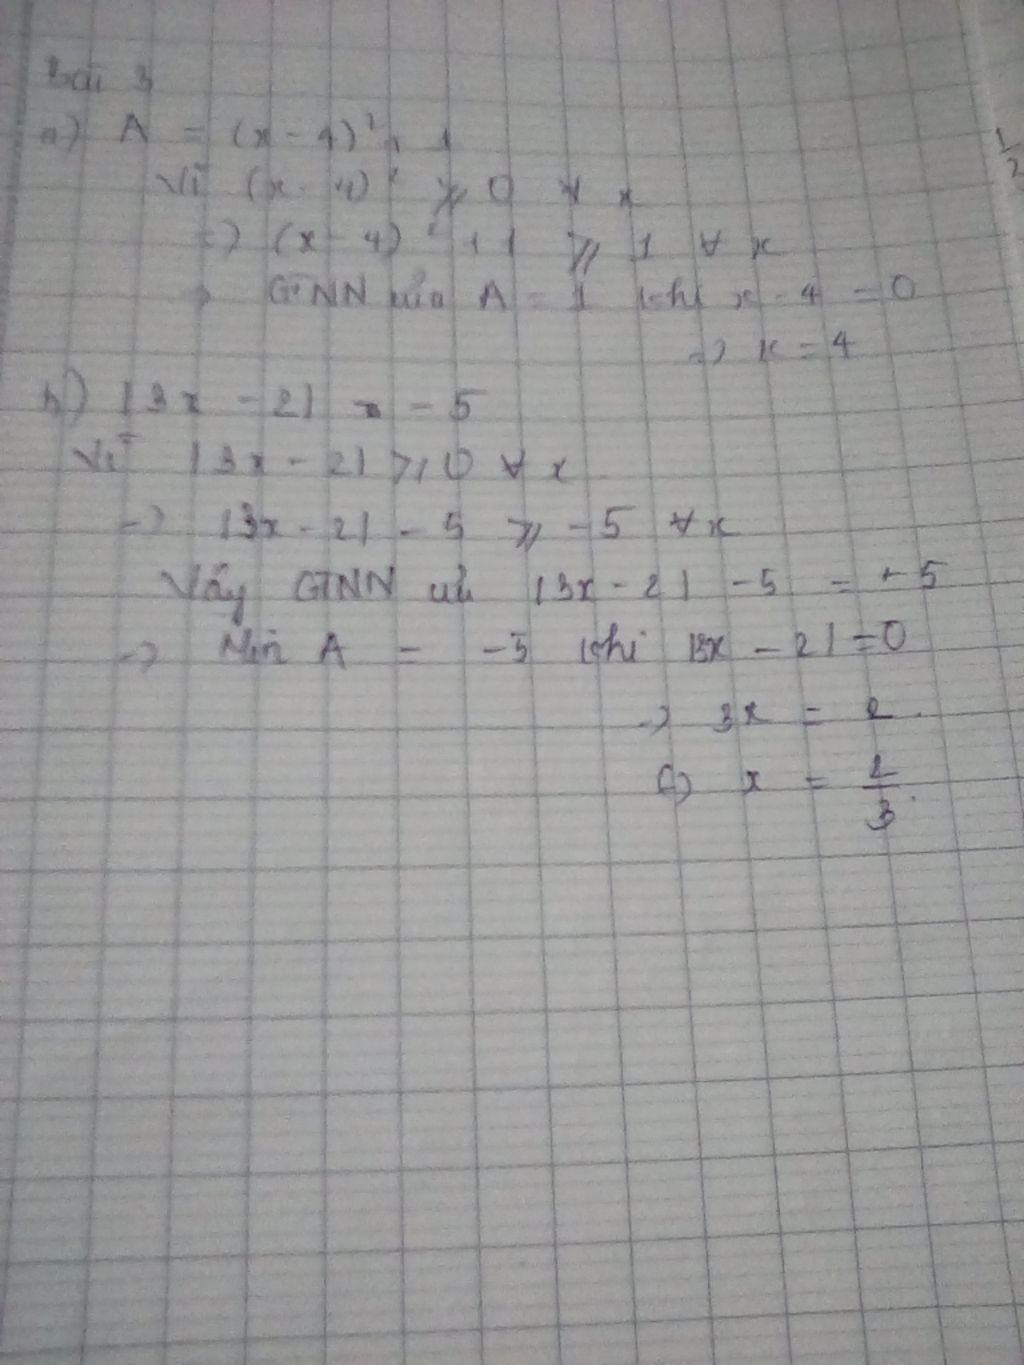 Bài 3
a) A = (x - 4)² + 1
Vì (x - 4)² ≥ 0 ∀ x
=> (x - 4)² + 1 ≥ 1 ∀ x
=> GTNN của A = 1 khi x - 4 = 0
=> x = 4
b) |3x - 2| - 5
Vì |3x - 2| ≥ 0 ∀ x
=> |3x - 2| - 5 ≥ -5 ∀ x
Vây GTNN |3x - 2| - 5 = - 5
=> Min A = -5 khi |3x - 2| = 0
=> 3x = 2
<=> x = 2/3
1/2